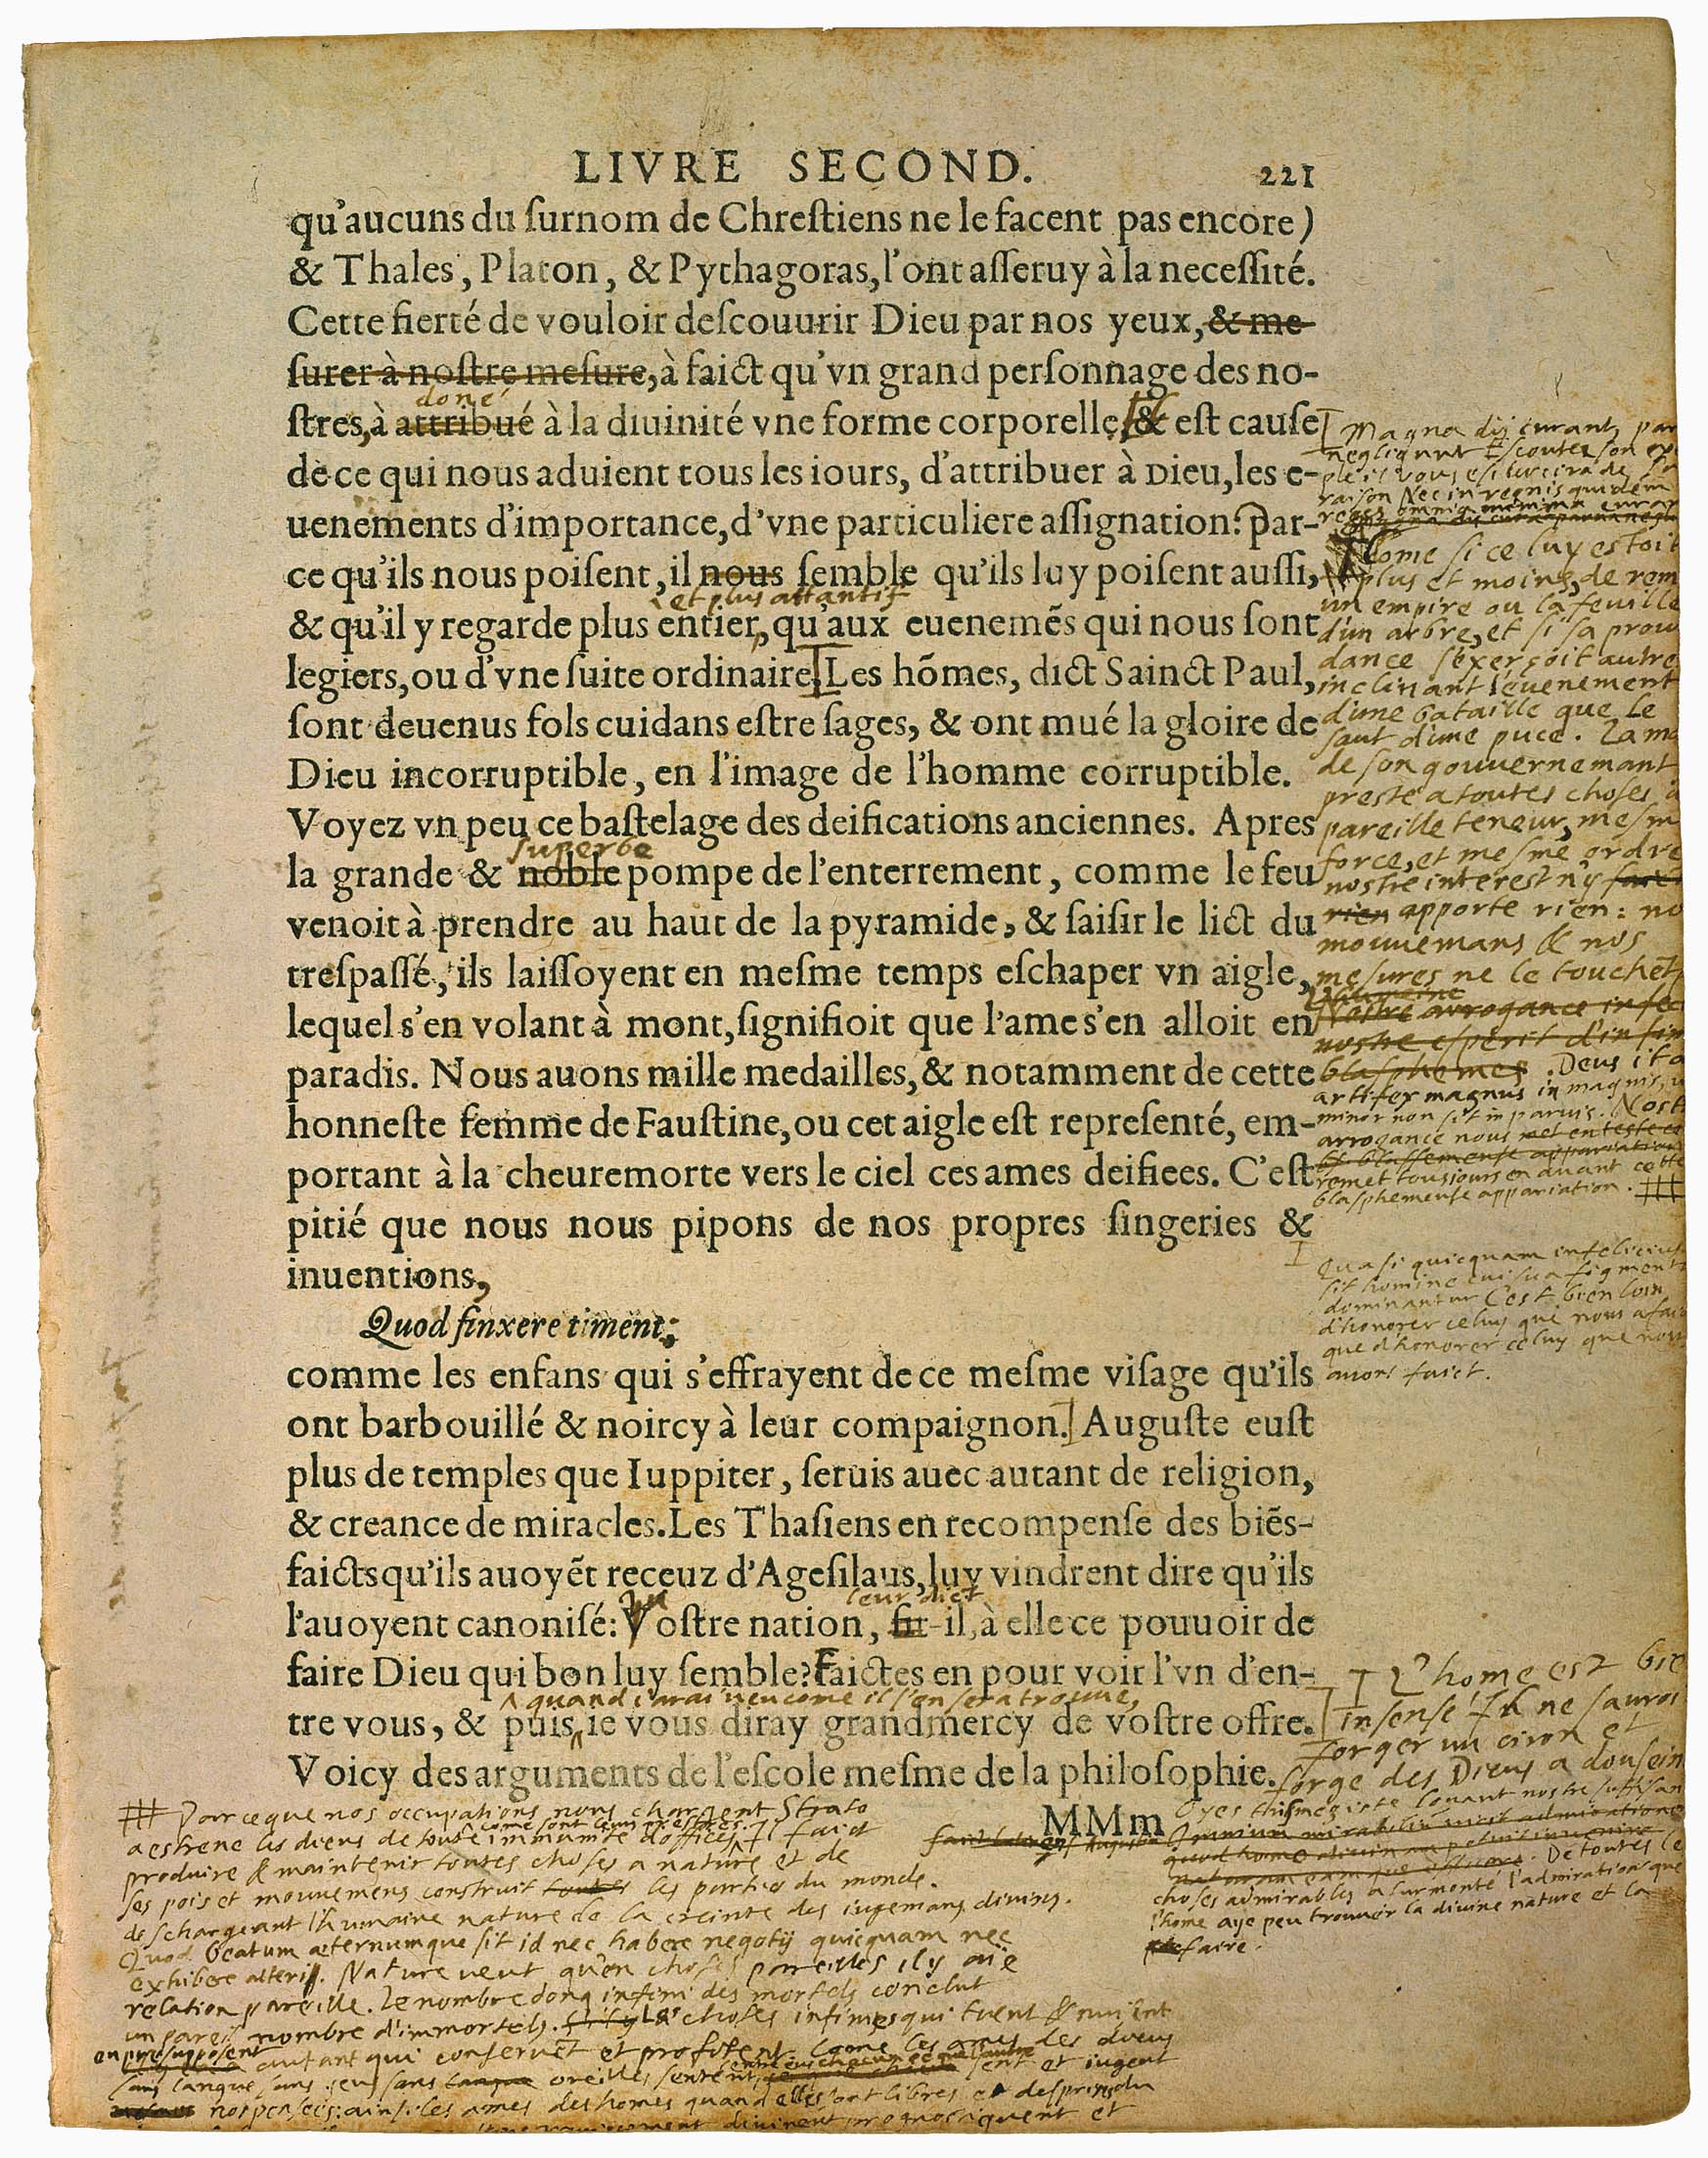 LIVRE SECOND. 221
qu'aucuns du ſurnom de Chreſtiens ne le facent pas encore)
& Thales, Platon, & Pythagoras, l'ont aſſeruy à la neceſſité.
Cette fierté de vouloir deſcouurir Dieu par nos yeux, & me-
ſurer à noſtre meſure, à faict qu'vn grand perſonnage des no-
doné
ſtres, à attribué à la diuinité vne forme corporelle, & eſt cauſe
de ce qui nous aduient tous les iours, d'attribuer à Dieu, les e-
uenements d'importance, d'vne particuliere aſſignation: Par-
ce qu'ils nous poiſent, il nous ſemble qu'ils luy poiſent auſſi,
et plus attantif
& qu'il y regarde plus entier, qu'aux euenemẽs qui nous ſont
legiers, ou d'vne ſuite ordinaire. Les hõmes, dict Sainct Paul,
ſont deuenus fols cuidans eſtre ſages, & ont mué la gloire de
Dieu incorruptible, en l'image de l'homme corruptible.
Voyez vn peu ce baſtelage des deifications anciennes. Apres
superbe
la grande & noble pompe de l'enterrement, comme le feu
venoit à prendre au haut de la pyramide, & ſaiſir le lict du
treſpaſſé, ils laiſſoyent en meſme temps eſchaper vn aigle,
lequel s'en volant à mont, ſignifioit que l'ame s'en alloit en
paradis. Nous auons mille medailles, & notamment de cette
honneſte femme de Fauſtine, ou cet aigle eſt repreſenté, em-
portant à la cheuremorte vers le ciel ces ames deifiees. C'eſt
pitié que nous nous pipons de nos propres ſingeries &
inuentions,
Quod finxere timent;
comme les enfans qui s'effrayent de ce meſme viſage qu'ils
ont barbouillé & noircy à leur compaignon. Auguſte euſt
plus de temples que Iuppiter, ſeruis auec autant de religion,
& creance de miracles. Les Thaſiens en recompenſe des biẽs-
faicts qu'ils auoyẽt receuz d'Ageſilaus, luy vindrent dire qu'ils
leur dict
l'auoyent canoniſé: Voſtre nation, fit-il, à elle ce pouuoir de
faire Dieu qui bon luy ſemble? Faictes en pour voir l'vn d'en-
quand i'arai veu come il s'en sera trouvé,
tre vous, & puis, ie vous diray grandmercy de voſtre offre.
Voicy des arguments de l'eſcole meſme de la philoſophie.
MMm
Magna dij curant, par
negligunt Escoutez son ex
raison Nec in regnis quidem
reges omnia minima curant
Come si ce luy estoit
plus et moins, de rem
un empire ou la feuille
d'un arbre, et si sa prou
dance s'exerçoit autre
inclinant l'euenement
d'une bataille que le
saut d'une puce. La ma
de son gouuernemant
preste a toutes choses
pareille teneur, mesm
force, et mesme ordre
nostre interest n'y
rien apporte rien: no
mouuemans & nos
mesures ne le touchẽt
Nostre arrogance infec
nostre esperit d'infin
blasphemes. Deus ita
artifex magnus in magnis,
minor non sit in paruis. Nost
arrogance nous met en teste
remet tousiours en auant cette
blasphemeuse appariation.
Quasi quicquam infelicius
sit homine cui sua figment
dominantur C'est bien loin
d'honorer celuy qui nous a faic
que d'honorer celuy que nous
auons faict.
L'home est bie
insensé Il ne sauroi
forger un ciron et
forge des Dieus a dousein
Oyes trismegiste louant nostre suffisan
De toutes le
choses admirables a surmonté l'admiration que
l'home aye peu trouuer la diuine nature et la
faire.
Parceque nos occupations nous chargent Strato
come sont
a estrené les dieus de toute immunité d'offices Il faict
produire & maintenir toutes choses a nature et de
ses pois et mouuemens construit toutes les parties du monde.
deschargeant l'humaine nature de la creinte des iugemans diuins.
Quod beatum æternumque sit id nec habere negotij quicquam nec
exhibere alteri. Nature veut qu'en choses pareilles il y aïe
relation pareille. Le nombre donq infini des mortels conclut
un pareil nombre d'immortels. Les choses infinies qui tuent & nuisent
en presupposent autant qui conseruẽt et profitent. Come les ames des dieus
sans langue sans yeus sans oreilles sentent et iugent
nos pensees: ainsi les ames des homes quand elles sont libres et